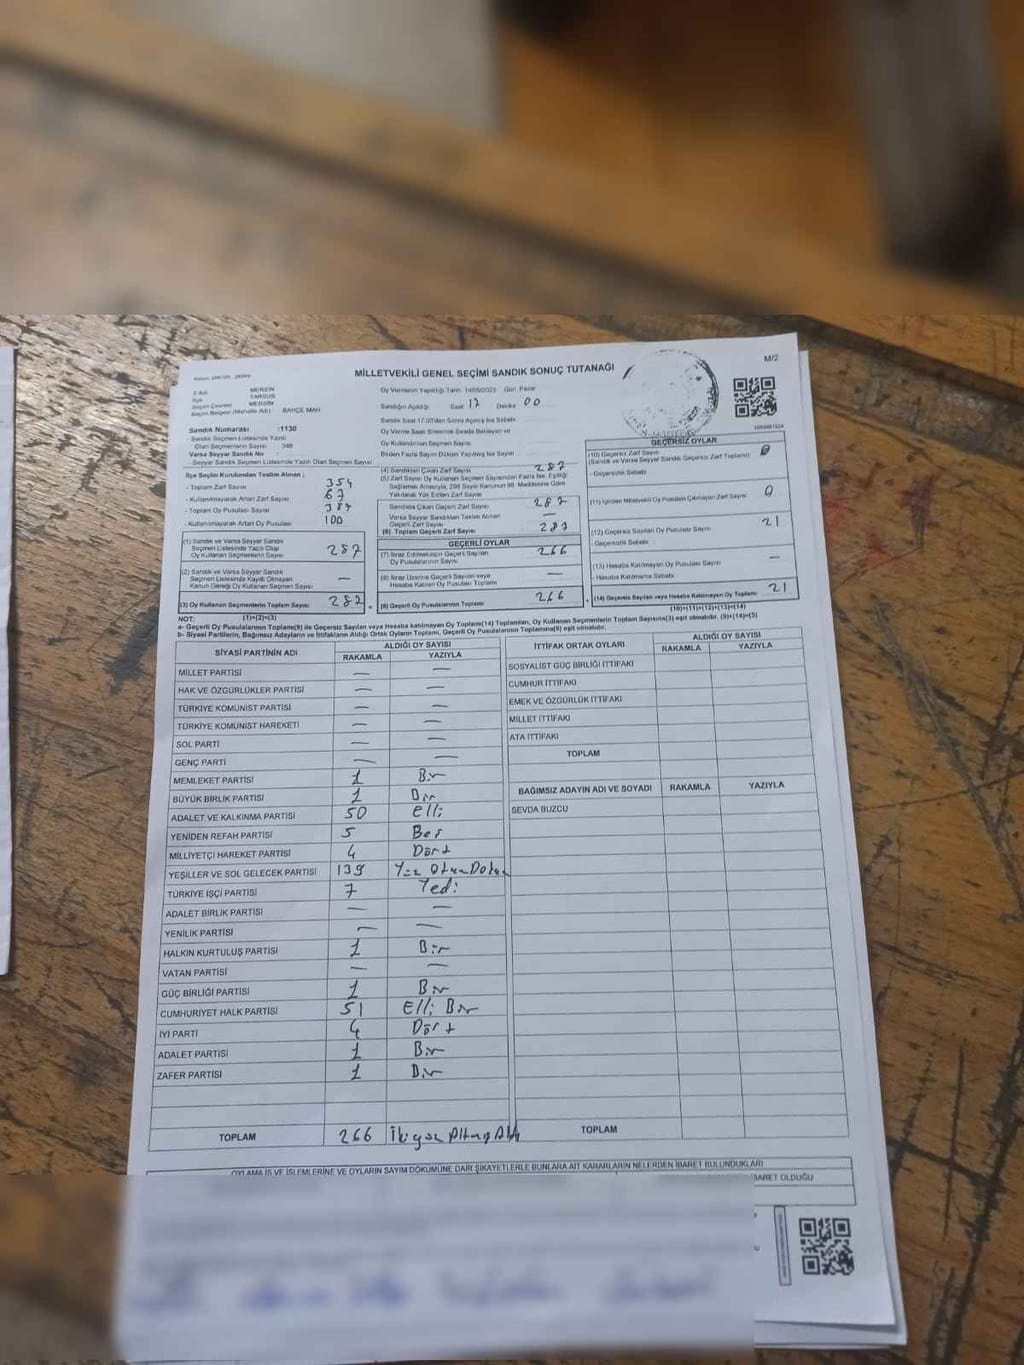 MİLLETVEKİLİ GENEL SEÇİMİ SANDIK SONUÇ TUTANAĞI
M/2
MERSİN
TARSUS
MERSİN
Seçim Bölgesi (Mahalle Adı) : BAHÇE MAH
Oy Vermenin Yapıldığı Tarih: 14/05/2023 Gün: Pazar
Sandığın Açıldığı Saat 17 Dakika 00
Sandık Numarası :1130
- Sandık Seçmen Listesinde Yazılı
Olan Seçmenlerin Sayısı : 346
Varsa Seyyar Sandık No :
- Seyyar Sandık Seçmen Listesinde Yazılı Olan Seçmen Sayısı:
Sandık Saat 17.00'den Sonra Açılmış İse Sebebi
Oy Verme Saati Bitiminde Sırada Bekleyen ve
Oy Kullandırılan Seçmen Sayısı
Birden Fazla Sayım Döküm Yapılmış İse Sayısı
İlçe Seçim Kurulundan Teslim Alınan ;
- Toplam Zarf Sayısı 354
- Kullanılmayarak Artan Zarf Sayısı 67
- Toplam Oy Pusulası Sayısı 387
- Kullanılmayarak Artan Oy Pusulası 100
(1) Sandık ve Varsa Seyyar Sandık
Seçmen Listesinde Yazılı Olup
Oy Kullanan Seçmenlerin Sayısı 287
(2) Sandık ve Varsa Seyyar Sandık
Seçmen Listesinde Kayıtlı Olmayan
Kanun Gereği Oy Kullanan Seçmenlerin Sayısı —
(3) Oy Kullanan Seçmenlerin Toplam Sayısı 287
(1)+(2)=(3)
(4) Sandıktan Çıkan Zarf Sayısı 287
(5) Zarf Sayısı Oy Kullanan Seçmen Sayısından Fazla İse, Eşitliği
Sağlamak Amacıyla, 298 Sayılı Kanunun 98. Maddesine Göre
Yakılarak Yok Edilen Zarf Sayısı
Sandıkta Çıkan Geçerli Zarf Sayısı 287
Varsa Seyyar Sandıktan Teslim Alınan
Geçerli Zarf Sayısı —
(6) Toplam Geçerli Zarf Sayısı 287
GEÇERLİ OYLAR
(7) İtiraz Edilmeksizin Geçerli Sayılan
Oy Pusulalarının Sayısı 266
(8) İtiraz Üzerine Geçerli Sayılan veya
Hesaba Katılan Oy Pusulaları Toplamı —
(9) Geçerli Oy Pusulalarının Toplamı 266
GEÇERSİZ OYLAR
(10) Geçersiz Zarf Sayısı
(Sandık ve Varsa Seyyar Sandık Geçersiz Zarf Toplamı) 0
- Geçersizlik Sebebi
(11) İçinden Milletvekili Oy Pusulası Çıkmayan Zarf Sayısı 0
(12) Geçersiz Sayılan Oy Pusulası Sayısı 21
- Geçersizlik Sebebi
(13) Hesaba Katılmayan Oy Pusulası Sayısı —
- Hesaba Katılmama Sebebi
(14) Geçersiz Sayılan veya Hesaba Katılmayan Oy Toplamı 21
(10)+(11)+(12)+(13)=(14)
NOT:
a- Geçerli Oy Pusulalarının Toplamı(9) ile Geçersiz Sayılan veya Hesaba katılmayan Oy Toplamı(14) Toplamları, Oy Kullanan Seçmenlerin Toplam Sayısına(3) eşit olmalıdır. (9)+(14)=(3)
b- Siyasi Partilerin, Bağımsız Adayların ve İttifakların Aldığı Ortak Oyların Toplamı, Geçerli Oy Pusulalarının Toplamına(9) eşit olmalıdır.
SİYASİ PARTİNİN ADI ALDIĞI OY SAYISI
RAKAMLA YAZIYLA
MİLLET PARTİSİ — —
HAK VE ÖZGÜRLÜKLER PARTİSİ — —
TÜRKİYE KOMÜNİST PARTİSİ — —
TÜRKİYE KOMÜNİST HAREKETİ — —
SOL PARTİ — —
GENÇ PARTİ — —
MEMLEKET PARTİSİ 1 Bir
BÜYÜK BİRLİK PARTİSİ 1 Bir
ADALET VE KALKINMA PARTİSİ 50 elli
YENİDEN REFAH PARTİSİ 5 Beş
MİLLİYETÇİ HAREKET PARTİSİ 4 Dört
YEŞİLLER VE SOL GELECEK PARTİSİ 139 Yüz Otuz Dokuz
TÜRKİYE İŞÇİ PARTİSİ 7 Yedi
ADALET BİRLİK PARTİSİ — —
YENİLİK PARTİSİ — —
HALKIN KURTULUŞ PARTİSİ 1 Bir
VATAN PARTİSİ — —
GÜÇ BİRLİĞİ PARTİSİ 1 Bir
CUMHURİYET HALK PARTİSİ 51 Elli Bir
İYİ PARTİ 4 Dört
ADALET PARTİSİ 1 Bir
ZAFER PARTİSİ 1 Bir
TOPLAM 266 İkiyüz Altmış Altı
İTTİFAK ORTAK OYLARI ALDIĞI OY SAYISI
RAKAMLA YAZIYLA
SOSYALİST GÜÇ BİRLİĞİ İTTİFAKI
CUMHUR İTTİFAKI
EMEK VE ÖZGÜRLÜK İTTİFAKI
MİLLET İTTİFAKI
ATA İTTİFAKI
TOPLAM
BAĞIMSIZ ADAYIN ADI VE SOYADI RAKAMLA YAZIYLA
SEVDA BUZCU
TOPLAM
OYLAMA İŞ VE İŞLEMLERİNE VE OYLARIN SAYIM DÖKÜMÜNE DAİR ŞİKAYETLERLE BUNLARA AİT KARARLARIN NELERDEN İBARET BULUNDUKLARI
BARET OLDUĞU